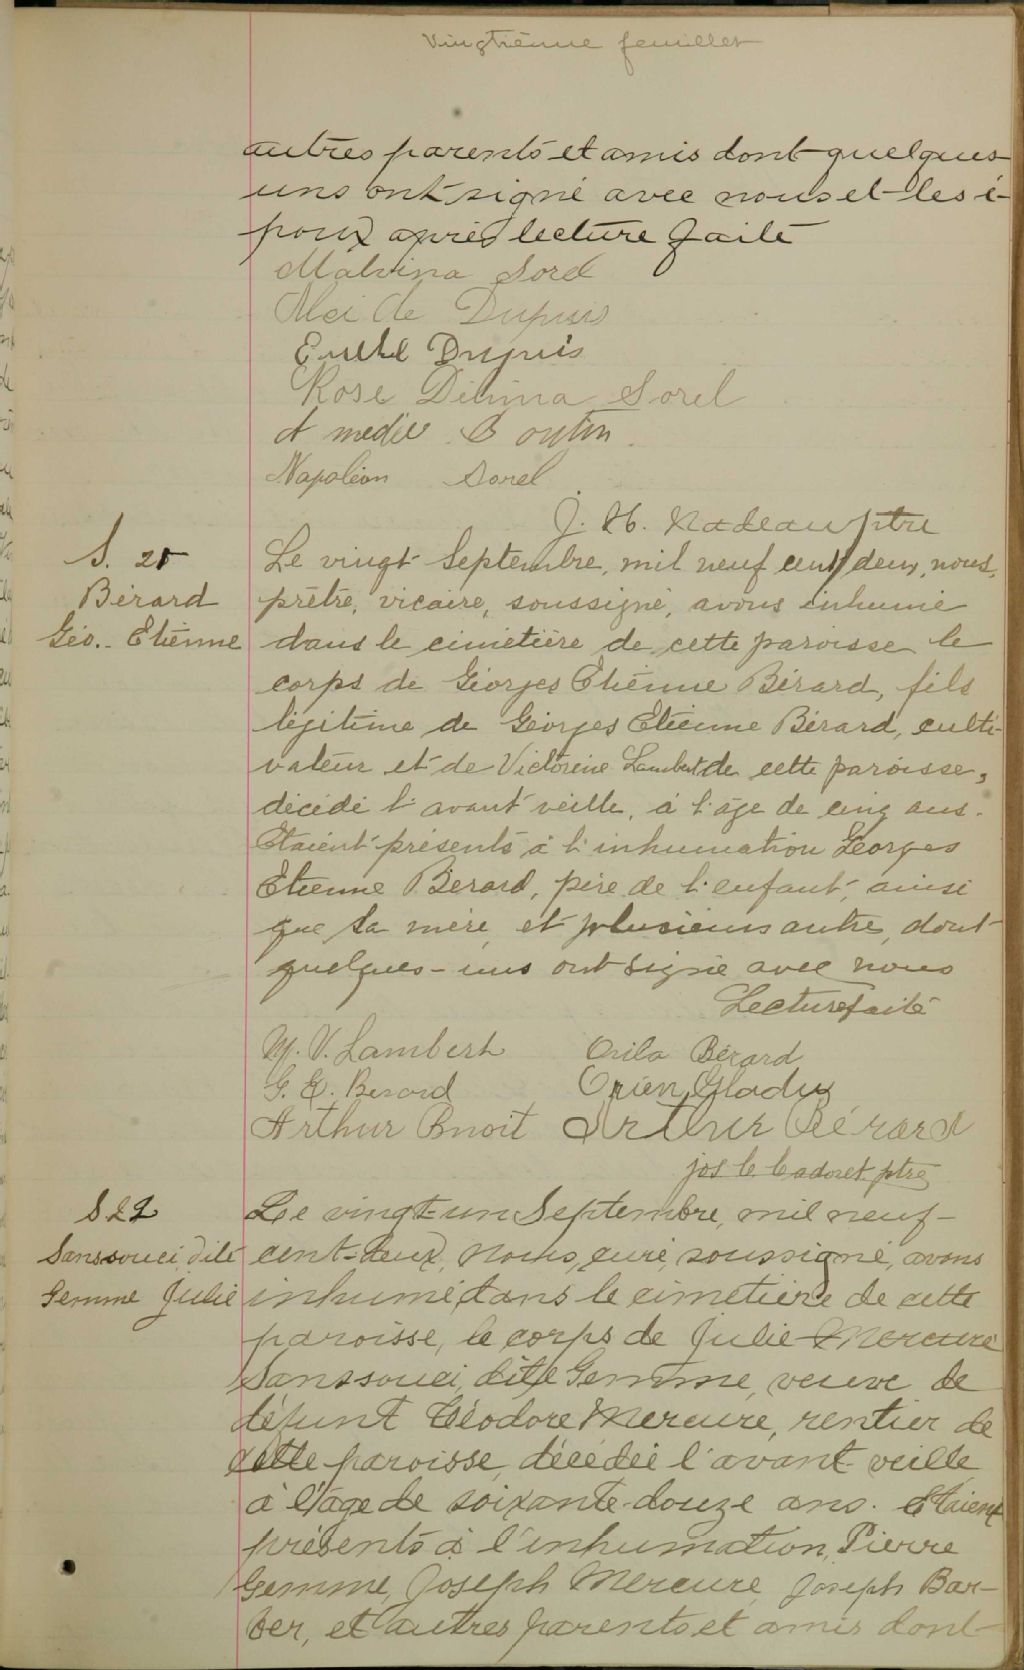 Vingtième feuillet
autres parents et amis dont quelques
uns ont signé avec nous et les é-
poux après lecture faite
Malvina Sorel
Dupuis
Dupuis
Rose Délima Sorel
Boutin
Napoléon Sorel
J. H. Nadeau ptre
S. 21
Bérard
Géo.- Etienne
Le vingt Septembre, mil neuf cent deux, nous,
prêtre, vicaire, soussigné, avons inhumé
dans le cimetière de cette paroisse le
corps de Georges Etienne Bérard, fils
légitime de Georges Etienne Bérard, culti-
vateur et de Victorine Lambert de cette paroisse,
décédé l'avant veille, à l'âge de cinq ans.
Etaient présents à l'inhumation Georges
Etienne Bérard, père de l'enfant, ainsi
que sa mère, et plusieurs autres, dont
quelques-uns ont signé avec nous
Lecture faite
M. V. Lambert Orila Bérard
G. E. Berard Gladu
Arthur Bnoit Arthur Bérard
jos C. Cadoret ptre
S 22
Sanssouci, dite
Gemme Julie
Le vingt-un Septembre, mil neuf-
cent-deux, Nous, curé, soussigné, avons
inhumé dans le cimetière de cette
paroisse, le corps de Julie Mercure
Sanssouci, dite Gemme, veuve de
défunt Téodore Mercure, rentier de
cette paroisse, décédée l'avant-veille
à l'âge de soixante-douze ans. Etaient
présents à l'inhumation, Pierre
Gemme, Joseph Mercure, Joseph Bar-
ber, et autres parents et amis dont